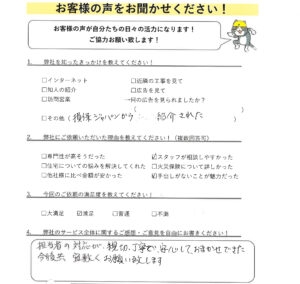 お客様の声をお聞かせください！
お客様の声が自分たちの日々の活力になります！
ご協力お願い致します！
1. 弊社を知ったきっかけを教えてください！
□インターネット □近隣の工事を見て
□知人の紹介 □広告を見て
□訪問営業 →何の広告を見られましたか？
( )
□その他 ( 損保ジャパンから 紹介された )
2. 弊社にご依頼いただいた理由を教えてください！（複数回答可）
□専門性が高そうだった ☑スタッフが相談しやすかった
□住宅についての悩みを解決してくれた □火災保険について詳しかった
□他社様に比べ金額が安かった ☑手出しがないことが魅力だった
3. 今回のご依頼の満足度を教えてください！
□大満足 ☑満足 □普通 □不満
4. 弊社のサービス全体に関するご感想・ご意見を自由にお書きください！
担当者の対応が、親切、丁寧で 安心しておまかせできた
今後共 宜敷くお願い致します